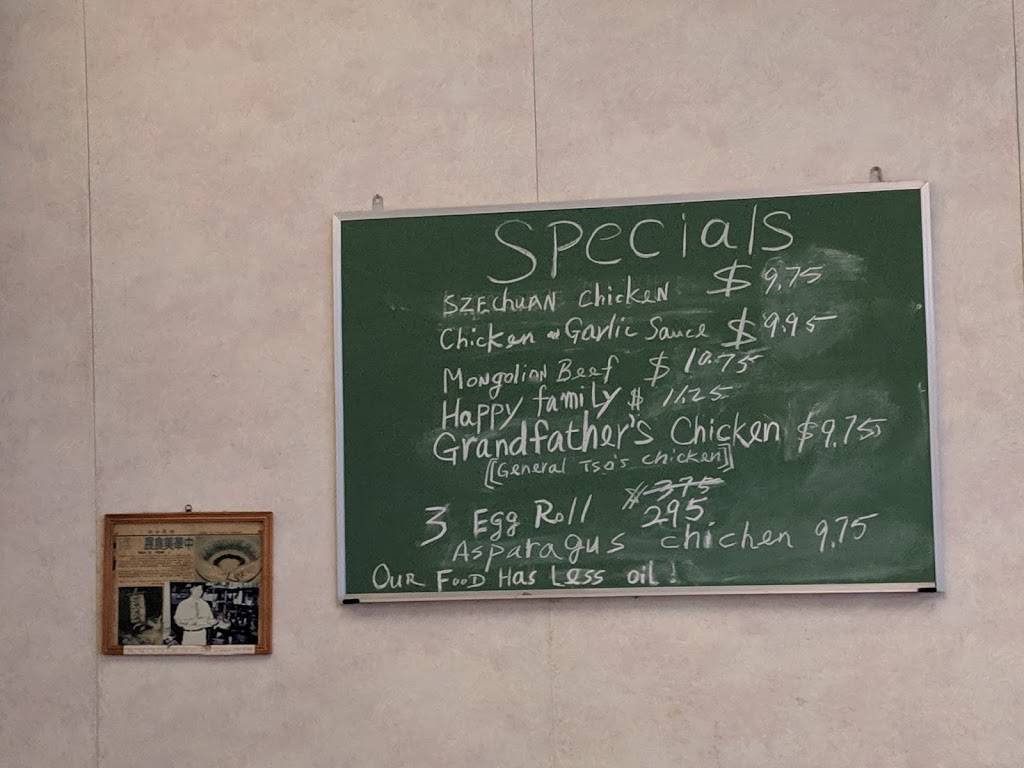 Specials
SZEChUAN ChickeN $ 9.75
Chicken Garlic Sauce $ 9.95
Mongolian Beef $ 10.75
Happy family $ 11.25
Grandfather's Chicken $ 9.75
[[General Tso's chicken]]
$ 375
3 Egg Roll 295
Asparagus chichen 9.75
OUR FOOD Has Less oil!